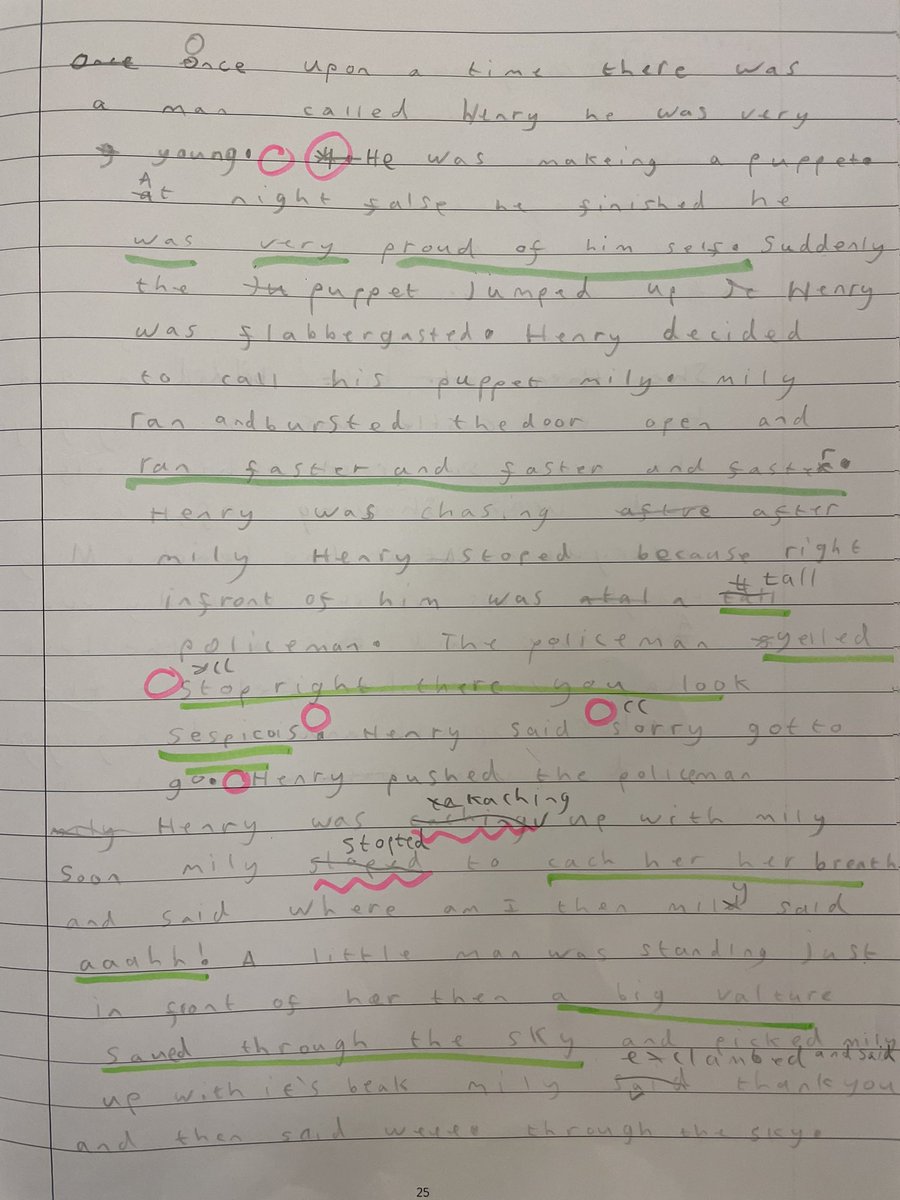 Once Once upon a time there was
a man called Henry he was very
young. He was makeing a puppet.
At night false he finished he
was very proud of him self. Suddenly
the puppet Jumped up Henry
was flabbergasted. Henry decided
to call his puppet mily. mily
ran and bursted the door open and
ran faster and faster and faster.
Henry was chasing aftre after
mily Henry stoped because right
infront of him was atal a tall tall
policeman. The policeman yelled
Stop right there you look
sespicols. Henry said sorry got to
go. Henry pushed the policeman
mily Henry was kaching up with mily
Soon mily stopted to cach her her breath
and said where am I then mily said
aaahh! A little man was standing just
in front of her then a big valture
saued through the sky and picked mily
up with it's beak mily said exclambed and said thankyou
and then said weeee through the sky.
25